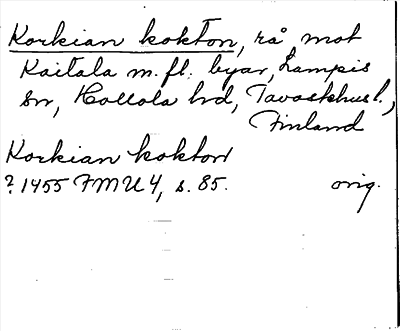 Korkian kokton, rå mot
Kaitala m. fl. byar, Lampis
sn, Hollola hd, Tavastehus l.,
Finland
Korkian kokton
? 1455 FMU 4, s. 85. orig.